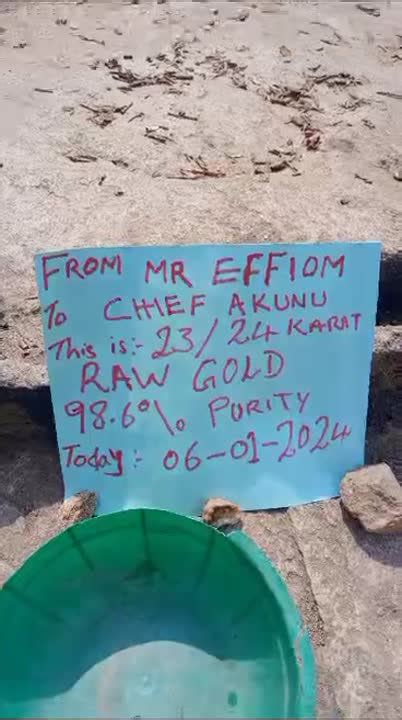 FROM MR EFFIOM
To CHIEF AKUNU
This is:- 23/24 KARAT
RAW GOLD
98.6% PURITY
Today:- 06-01-2024